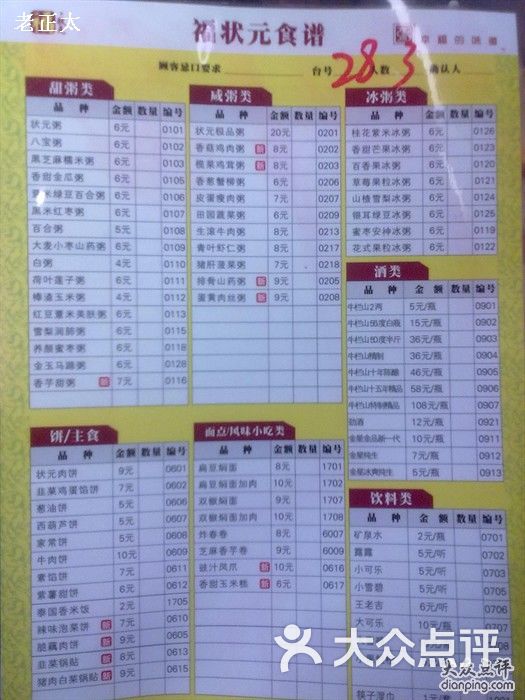 老正太
福状元食谱
幸福的味道
顾客忌口要求 台号 28.3 人数 确认人
甜粥类
品种 金额 数量 编号
状元粥 6元 0101
八宝粥 6元 0102
黑芝麻糯米粥 6元 0103
香甜金瓜粥 6元 0105
薏米绿豆百合粥 6元 0106
黑米红枣粥 6元 0107
百合粥 5元 0108
大麦小枣山药粥 6元 0109
白粥 4元 0110
荷叶莲子粥 6元 0111
棒渣玉米粥 4元 0112
红豆薏米美肤粥 6元 0113
雪梨润肺粥 6元 0114
养颜蜜枣粥 6元 0118
金玉马蹄粥 6元 0128
香芋甜粥 新 7元 0116
咸粥类
品种 金额 数量 编号
状元极品粥 20元 0201
香菇鸡肉粥 新 8元 0202
榄菜鸡茸粥 新 8元 0203
香葱蟹柳粥 6元 0206
皮蛋瘦肉粥 7元 0207
田园蔬菜粥 6元 0209
生滚牛肉粥 8元 0210
青叶虾仁粥 8元 0217
猪肝菠菜粥 7元 0218
排骨山药粥 新 9元 0205
蛋黄肉丝粥 新 9元 0208
冰粥类
品种 金额 数量 编号
桂花紫米冰粥 6元 0126
香甜芒果冰粥 6元 0123
百香果冰粥 6元 0120
草莓果粒冰粥 6元 0121
山楂雪梨冰粥 6元 0124
银耳绿豆冰粥 6元 0125
蜜枣安神冰粥 6元 0119
花式果粒冰粥 6元 0122
酒类
品种 金额 数量 编号
牛栏山2两 5元/瓶 0901
牛栏山56度白瓶 15元/瓶 0902
牛栏山60度半斤 36元/瓶 0903
牛栏山精制 36元/瓶 0904
牛栏山十年陈酿 46元/瓶 0905
牛栏山十五年精品 58元/瓶 0906
牛栏山特制精品 108元/瓶 0907
劲酒 12元/瓶 0908
金星金品新一代 10元/瓶
金星纯生 7元/瓶
金星冰爽纯生 5元/瓶 0913
饼/主食
品种 金额 数量 编号
状元肉饼 9元 0601
韭菜鸡蛋馅饼 7元 0602
葱油饼 5元 0606
西葫芦饼 5元 0607
家常饼 5元 0608
牛肉饼 10元 0609
素馅饼 7元 0611
紫薯甜饼 6元 0612
泰国香米饭 2元 1705
辣味泡菜饼 新 7元
脆藕肉饼 新 9元
韭菜锅贴 新 8元 0613
猪肉白菜锅贴 新 9元 0615
面点/风味小吃类
品种 金额 数量 编号
扁豆焖面 8元 1701
扁豆焖面加肉 10元 1702
双椒焖面 8元
双椒焖面加肉 10元 1704
炸春卷 8元 6007
芝麻香芋卷 9元 6009
豉汁凤爪 新 10元 0616
香甜玉米糕 新 6元 0617
饮料类
品种 金额 数量 编号
矿泉水 2元/瓶 0701
露露 5元/听 0702
小可乐 5元/听 0703
小雪碧 5元/听 0704
王老吉 6元/听
大可乐
筷子湿巾 1元
大众点评
大众点评
dianping.com